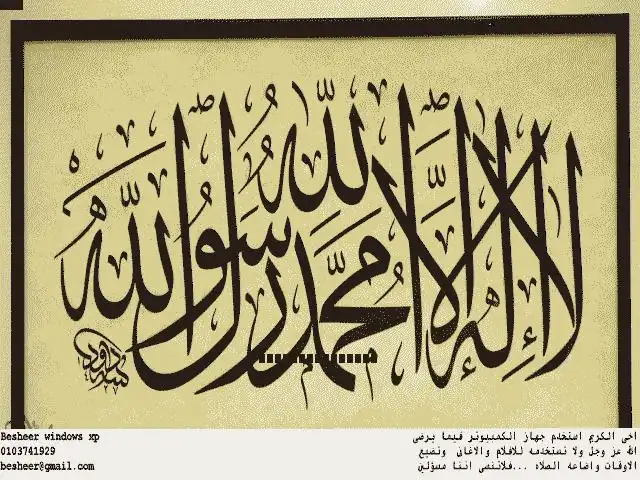 لا إله إلا الله محمد رسول الله
Besheer windows xp
0103741929
besheer@gmail.com
اخى الكريم استخدم جهاز الكمبيوتر فيما يرضى
الله عز وجل ولا تستخدمه للافلام والاغانى وتضيع
الاوقات واضاعه الصلاه ...فلاننسى اننا مسؤلين